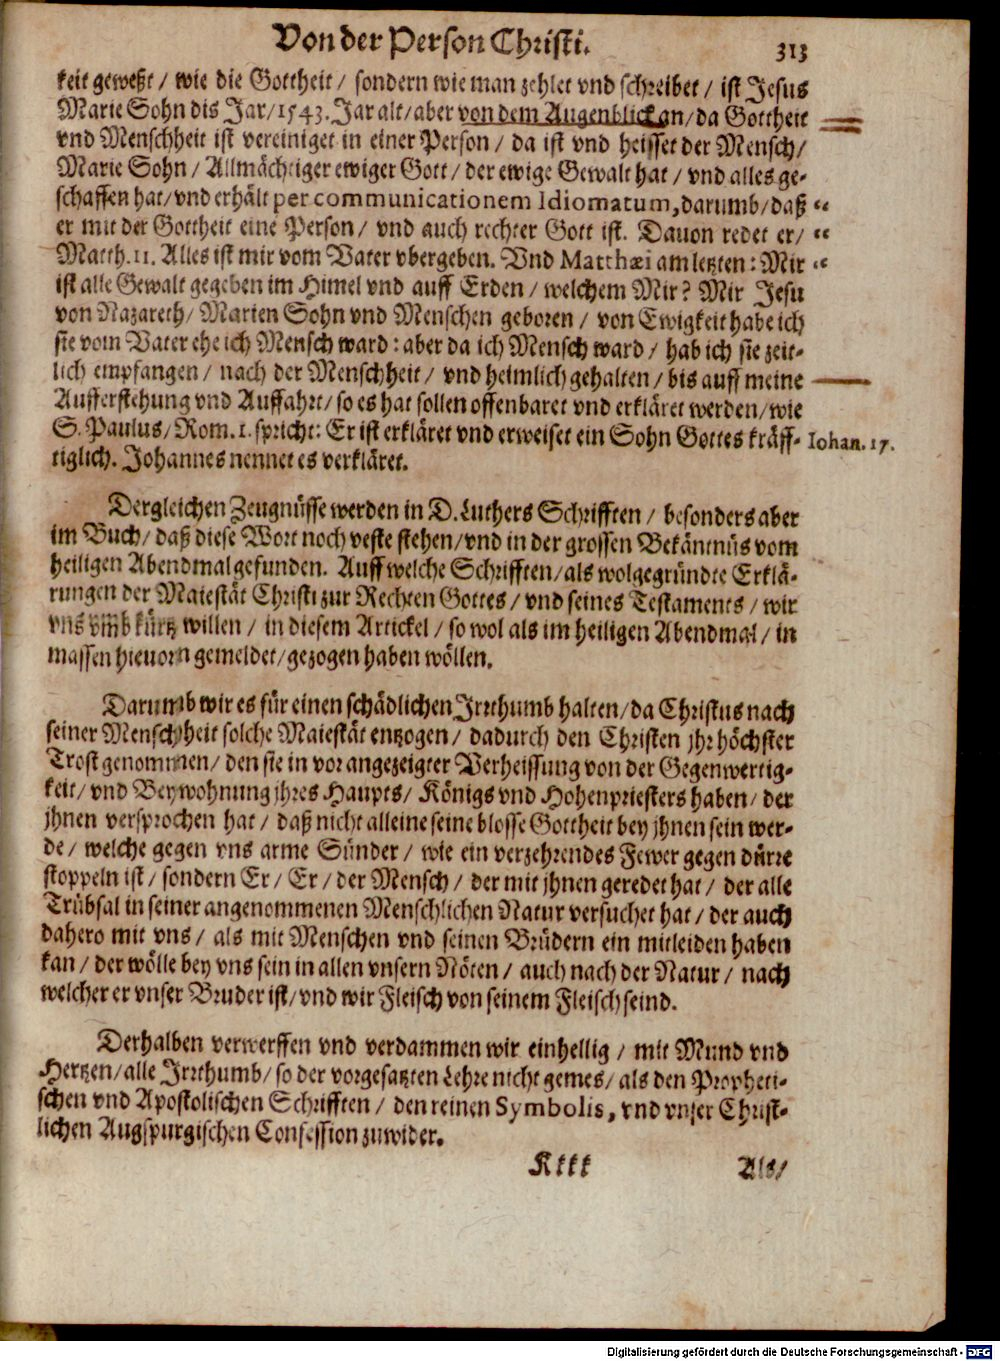 Von der Person Christi.
313
keit geweßt / wie die Gottheit / sondern wie man zehlet vnd schreibet / ist Jesus
Marie Sohn dis Jar/1543. Jar alt/aber von dem Augenblick an/da Gottheit
vnd Menschheit ist vereiniget in einer Person / da ist vnd heisset der Mensch/
Marie Sohn / Allmächtiger ewiger Gott / der ewige Gewalt hat / vnd alles ge-
schaffen hat/vnd erhält per communicationem Idiomatum, darumb/daß
er mit der Gottheit eine Person / vnd auch rechter Gott ist. Dauon redet er/
Matth. 11. Alles ist mir vom Vater vbergeben. Vnd Matthæi am letzten: Mir
ist alle Gewalt gegeben im Himel vnd auff Erden / welchem Mir? Mir Jesu
von Nazareth/ Marien Sohn vnd Menschen geboren / von Ewigkeit habe ich
sie vom Vater ehe ich Mensch ward: aber da ich Mensch ward / hab ich sie zeit-
lich empfangen / nach der Menschheit / vnd heimlich gehalten / bis auff meine
Aufferstehung vnd Auffahrt/so es hat sollen offenbaret vnd erkläret werden/wie
S. Paulus/Rom. 1. spricht: Er ist erkläret vnd erweiset ein Sohn Gottes kräff-
Iohan. 17.
tiglich. Johannes nennet es verkläret.
Dergleichen Zeugnüsse werden in D. Luthers Schrifften / besonders aber
im Buch/ daß diese Wort noch veste stehen/vnd in der grossen Bekäntnüs vom
heiligen Abendmal gefunden. Auff welche Schrifften/als wolgegründte Erklä-
rungen der Maiestät Christi zur Rechten Gottes / vnd seines Testaments / wir
vns vmb kürtz willen / in diesem Artickel / so wol als im heiligen Abendmal / in
massen hieuorn gemeldet/gezogen haben wöllen.
Darumb wir es für einen schädlichen Irrthumb halten/da Christus nach
seiner Menschheit solche Maiestät entzogen / dadurch den Christen jhr höchster
Trost genommen/ den sie in vor angezeigter Verheissung von der Gegenwertig-
keit/ vnd Beywohnung jhres Haupts/ Königs vnd Hohenpriesters haben/ der
jhnen versprochen hat / daß nicht alleine seine blosse Gottheit bey jhnen sein wer-
de/ welche gegen vns arme Sünder / wie ein verzehrendes Fewer gegen dürre
stoppeln ist / sondern Er / Er / der Mensch / der mit jhnen geredet hat / der alle
Trübsal in seiner angenommenen Menschlichen Natur versuchet hat / der auch
dahero mit vns / als mit Menschen vnd seinen Brüdern ein mitleiden haben
kan / der wölle bey vns sein in allen vnsern Nöten / auch nach der Natur / nach
welcher er vnser Bruder ist/vnd wir Fleisch von seinem Fleisch seind.
Derhalben verwerffen vnd verdammen wir einhellig / mit Mund vnd
Hertzen/alle Irrthumb/ so der vorgesatzten Lehre nicht gemes/ als den Propheti-
schen vnd Apostolischen Schrifften / den reinen Symbolis, vnd vnser Christ-
lichen Augspurgischen Confession zuwider.
Kkkk
Als/
Digitalisierung gefördert durch die Deutsche Forschungsgemeinschaft - DFG